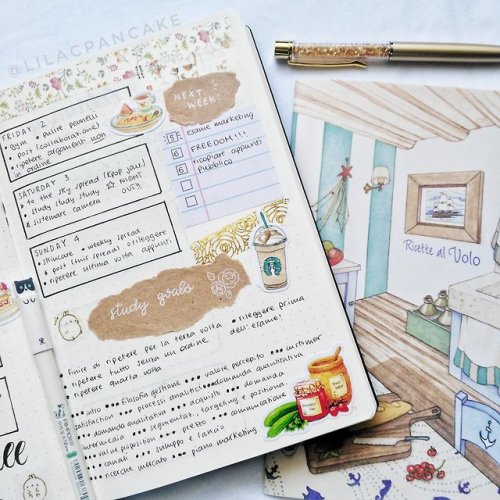 @LILACPANCAKE
FRIDAY 2
• gym • pulire pennelli
• post (collaborazione)
• ripetere argomenti non
in ordine
SATURDAY 3
• to the sky spread (kpop jour)
• study study study ☆ NIGHT
& sistemare camera OUT!!
SUNDAY 4
• skincare • weekly spread
• post (this spread) • rileggere
• ripetere ultima volta appunti
NEXT
WEEK!
5 esame marketing
6 FREEDOM!!!
6 ricopiare appunti
pubblico
study goals
finire di ripetere per la terza volta
ripetere tutto senza un ordine.
ripetere quarta volta
• rileggere prima
dell'esame!
intro ••• filosofia gestione ••• valore percepito ••• customer
satisfaction ••• processi analitici ••• domanda quantitativa
••• domanda qualitativa ••• acquisto ••• domanda
intermedia ••• segmentaz. targeting e positiona
••• value proposition ••• prezzo ••• comunicazione
••• canali ••• sviluppo e lancio
ricerche mercato ••• piano marketing
Ricette al Volo